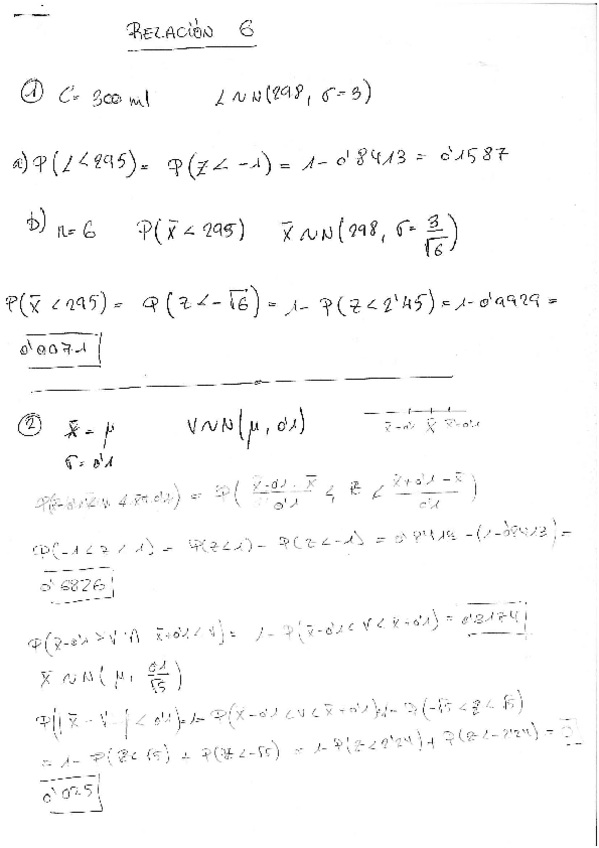 RELACIÓN 6
① C = 300 ml L ~ N(298, σ=3)
a) P(L<295) = P(Z<-1) = 1-0'8413 = 0'1587
b) n=6 P(X̄<295) X̄ ~ N(298, σ=3/√6)
P(X̄<295) = P(Z<-√6) = 1-P(Z<2'45) = 1-0'9929 =
0'0071
② X̄ = μ V ~ N(μ, 0'1)
σ = 0'1
x̄-0'1 x̄ x̄-0'1
= P(x̄-0'1-x̄/0'1 < Z < x̄+0'1-x̄/0'1)
P(-1<Z<1) = P(Z<1) - P(Z<-1) = 0'8413-(1-0'8413) =
0'6826
P(x̄-0'1>V ∩ x̄+0'1<V) = 1-P(x̄-0'1<V<x̄+0'1) = 0'3174
X̄ ~ N(μ, 0'1/√5)
= 1-P(x̄-0'1<V<x̄+0'1) P(-√5<Z<√5)
= 1-P(Z<√5) + P(Z<-√5) = 1-P(Z<2'24) + P(Z<-2'24) =
0'025